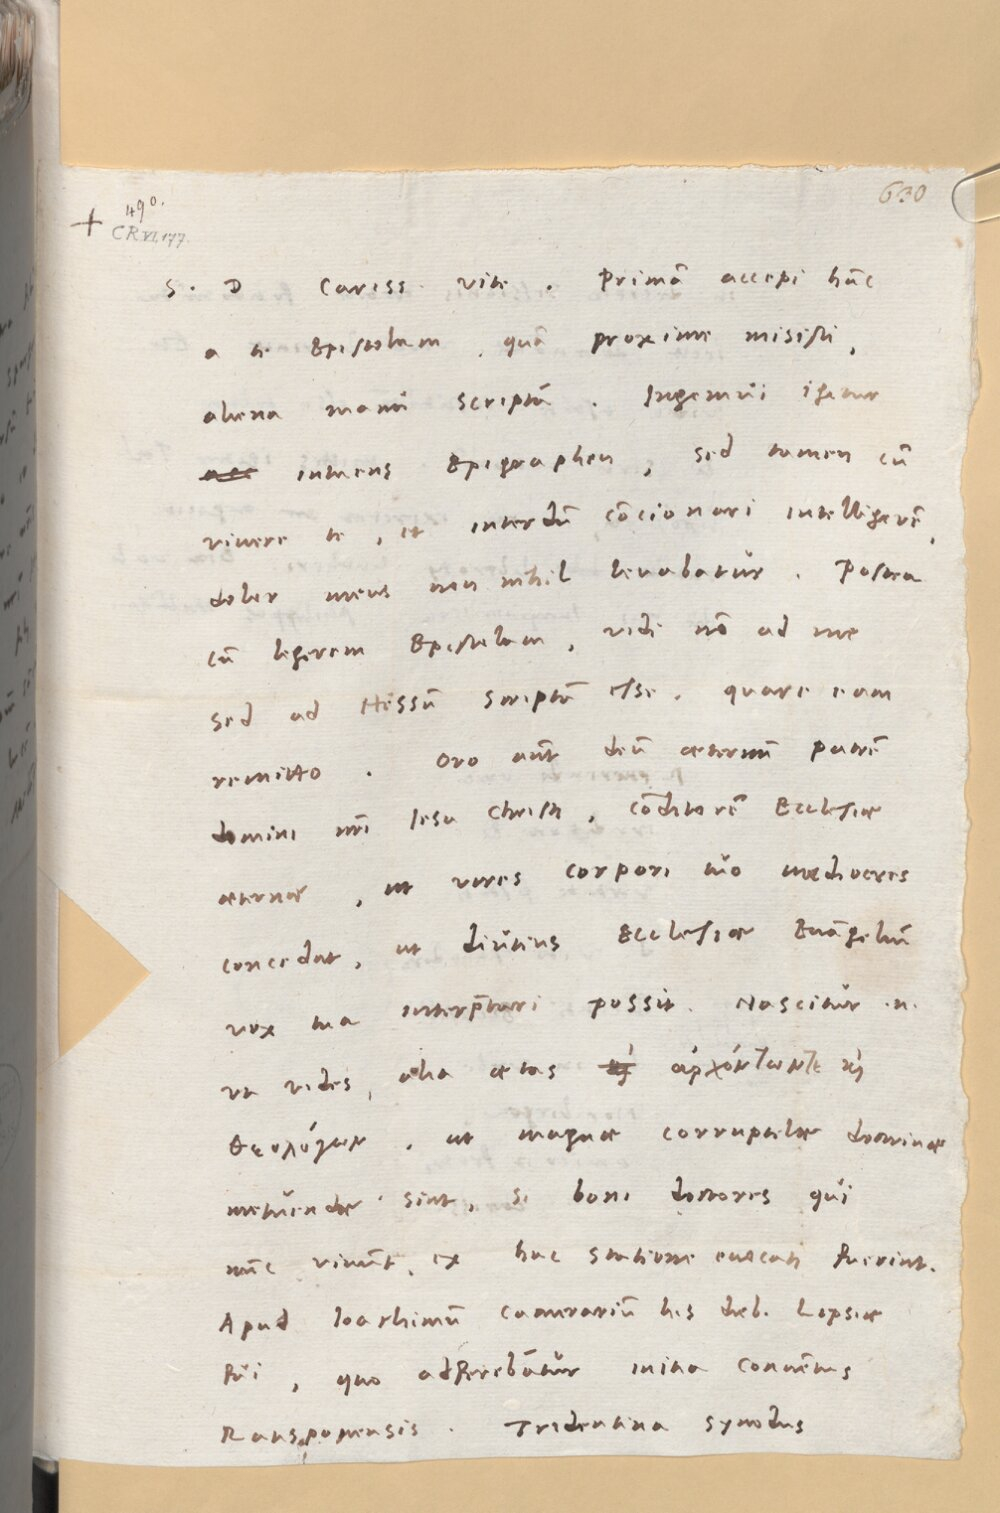 630
490.
+ CR. VI, 177.
S. D Cariss. vite. Primā accepi hāc
a te Epistolam, quā proxime misisti,
aliena manu scriptā. Ingemui igitur
intuens Epigraphen, sed tamen cū
vivere te, et interdū cōcionari intelligerē,
dolor meus non nihil levabatur. Postea
cū legerem Epistolam, vidi nō ad me
sed ad Hessū scriptā esse. quare eam
remitto. Oro aūt deū æternū patrē
domini nri Iesu Christi, cōditorē Ecclesiæ
æternæ, ut vires corpori tuo mediocres
concedat, ut diutius Ecclesiæ Evāgeliū
vox tua interp̄tari possit. Nascitur .n.
ut vides, alia ætas ἀρχόντων τε καὶ
θεολόγων, ut magnæ corruptelæ doctrinæ
metuendæ sint, si boni doctores qui
nūc vivūt, ex hac statione evocati fuerint.
Apud Ioachimū Camerariū his dieb. Lipsiæ
fui, quo adferebātur initia Convētus
Ratisponensis. Tridentina synodus